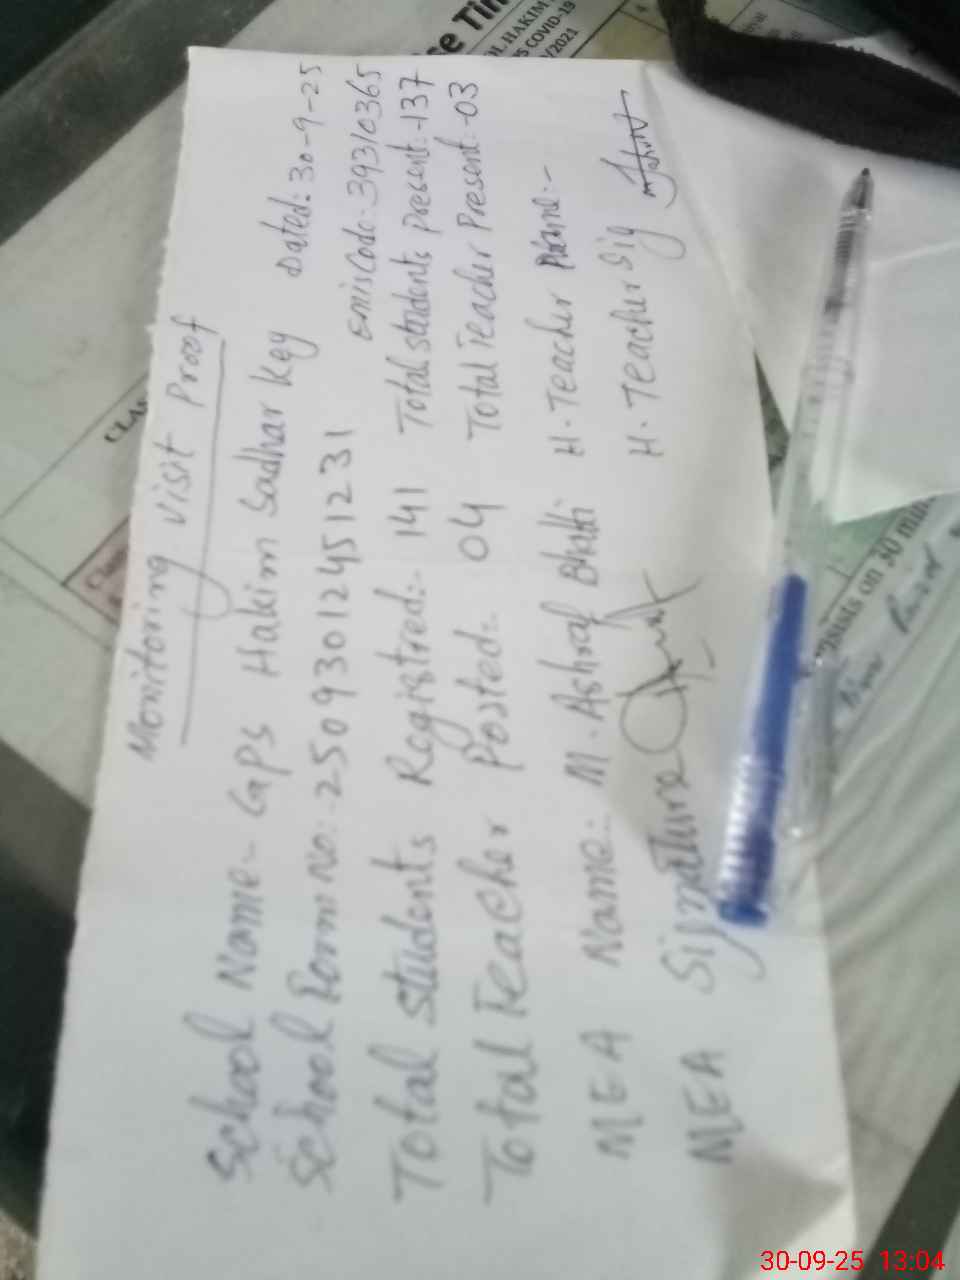 Monitoring visit Proof
School Name:- GPS Hakim Sadhar key Dated: 30-9-25
School Form No:- 250930124512 31
EmisCode: 39310365
Total students Registred:- 141 Total students present:-137
Total Teacher Posted:- 04 Total Teacher Present:-03
MEA Name:- M. Ashraf Bhatti H. Teacher Name:-
MEA Signature H. Teacher Sig
HAKIM
S COVID-19
/2021
CLAS
on 30 min
30-09-25 13:04